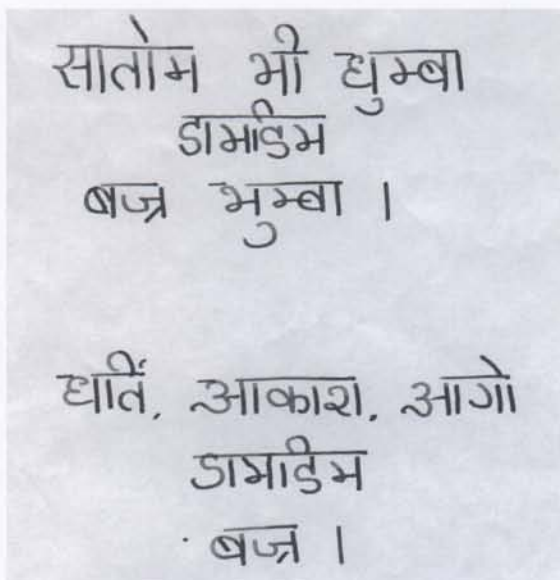 सातोम भी धुम्बा
डामाडिम
बज्र भुम्बा ।
धर्ति, आकाश, आगो
डामाडिम
बज्र ।